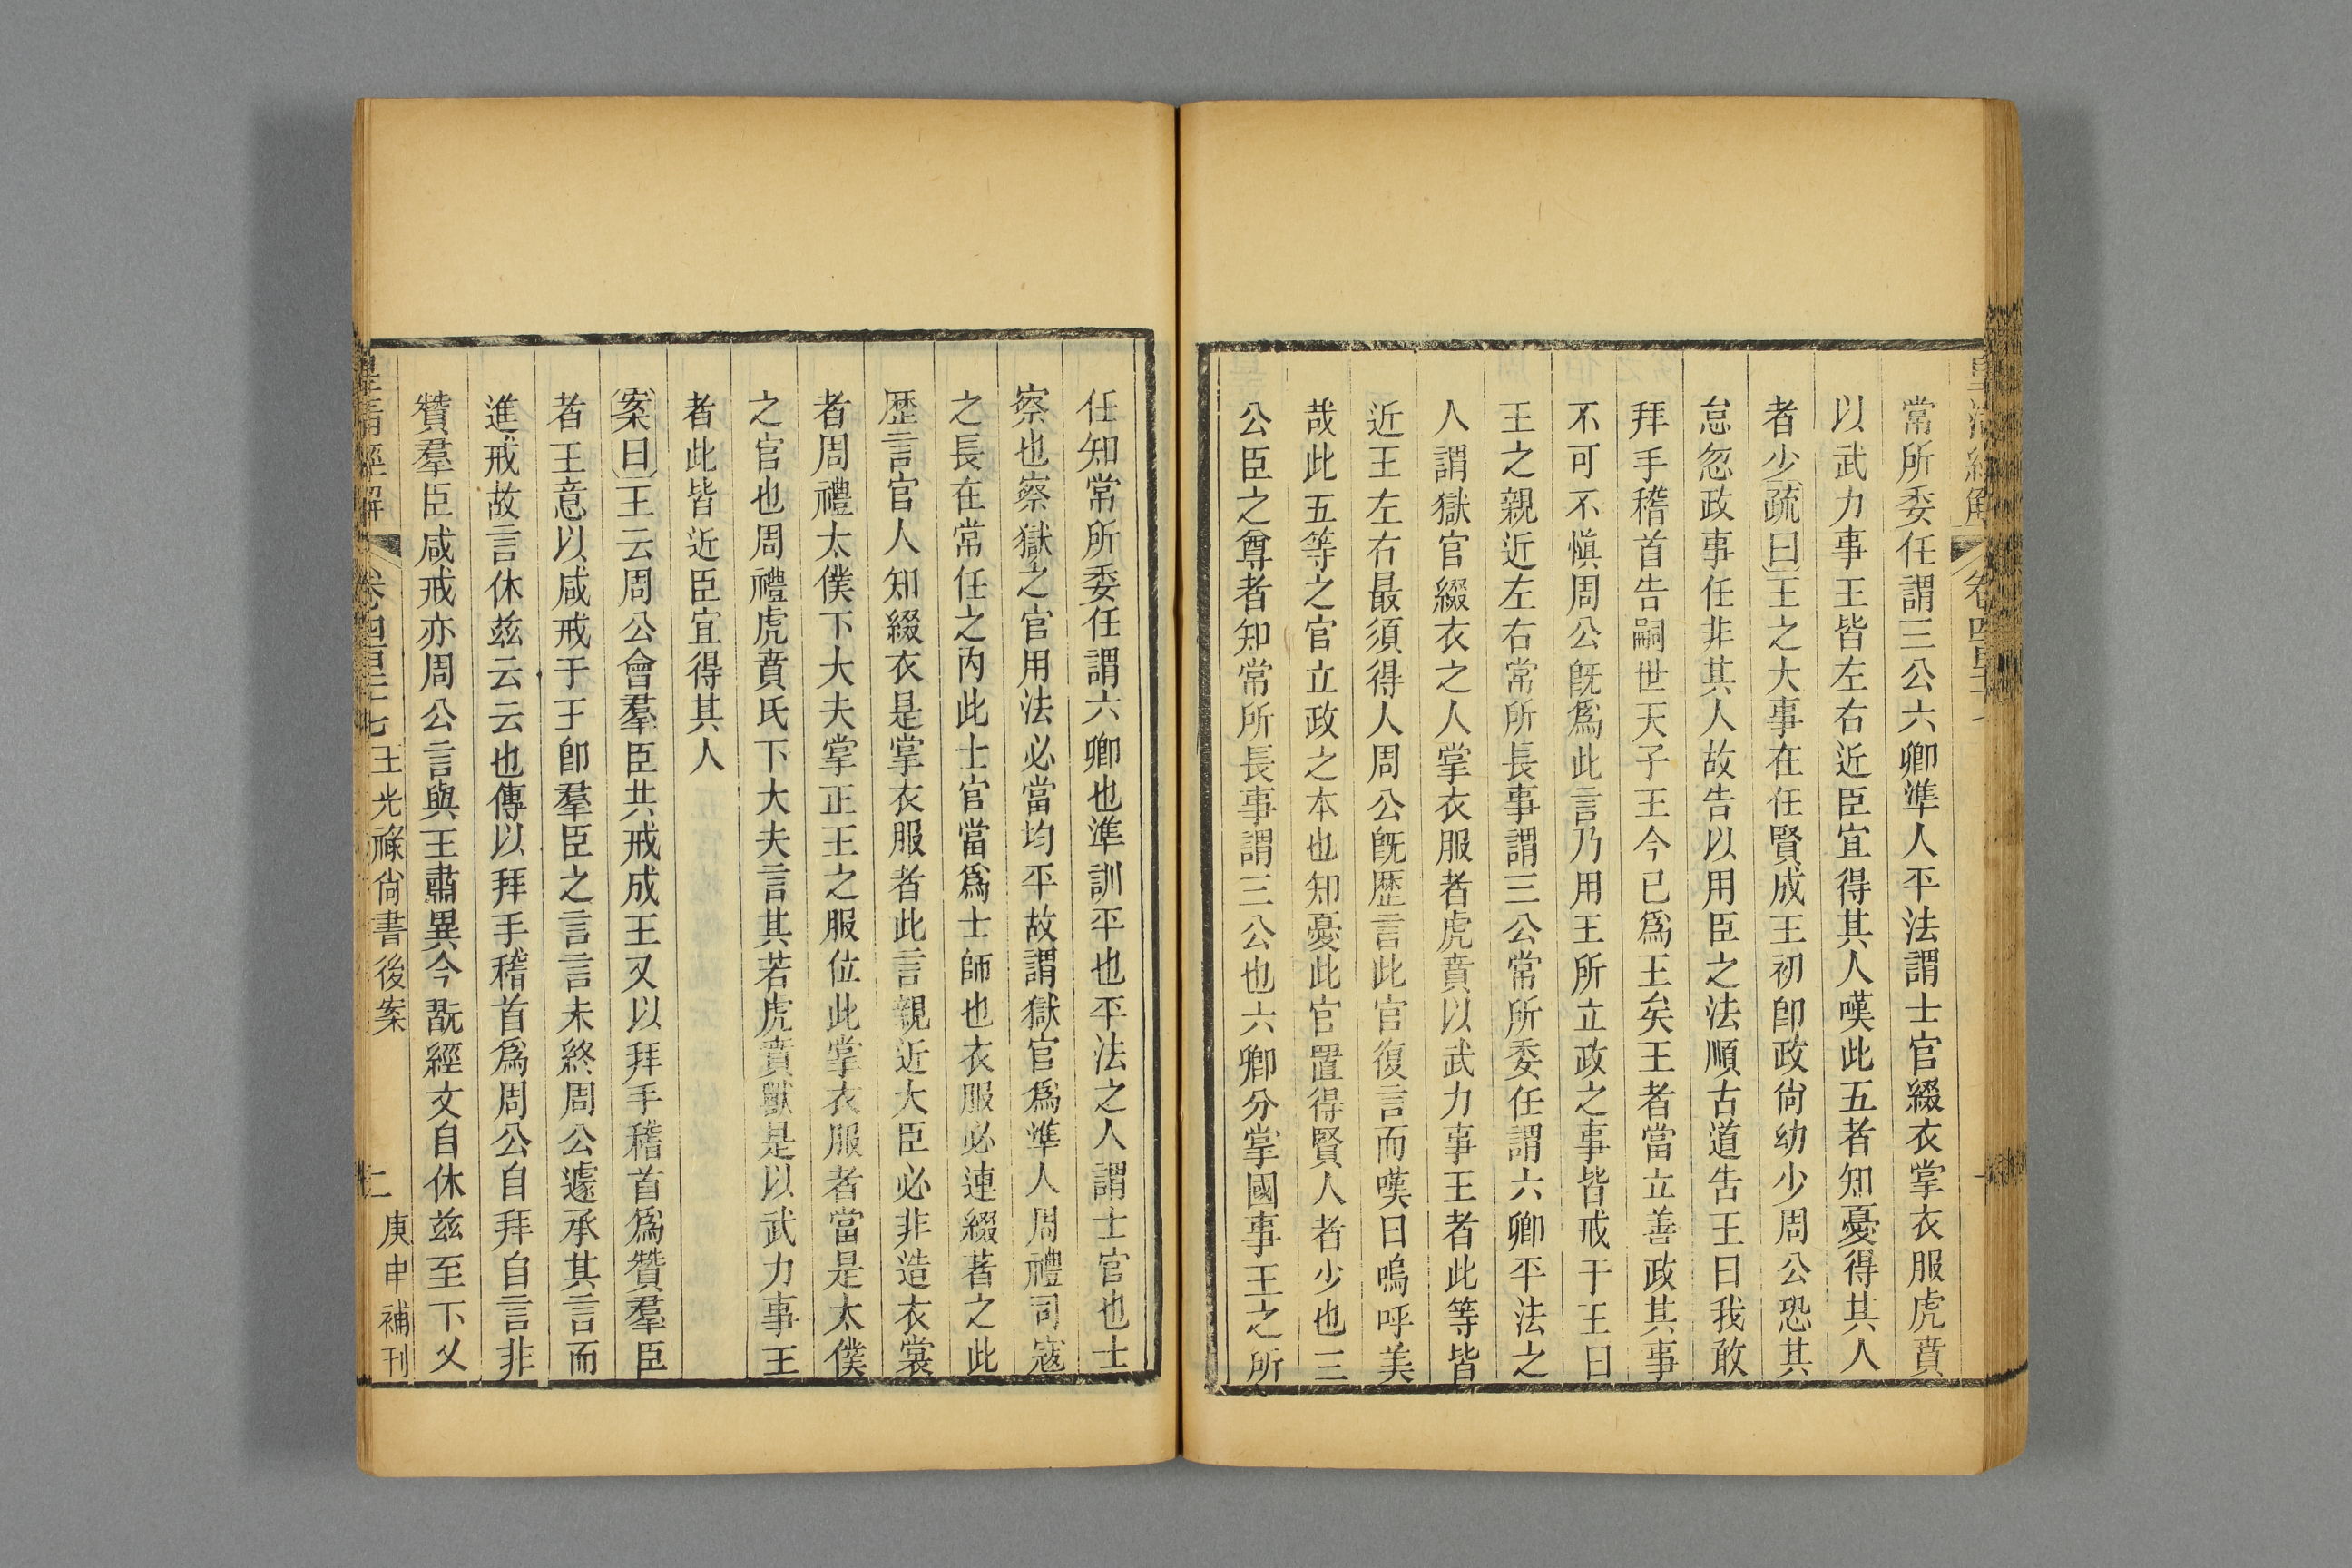 常所委任謂三公六卿準人平法謂士官綴衣掌衣服虎賁
以武力事王皆左右近臣宜得其人嘆此五者知憂得其人
者少疏曰王之大事在任賢成王初卽政尙幼少周公恐其
怠忽政事任非其人故告以用臣之法順古道告王曰我敢
拜手稽首告嗣世天子王今已爲王矣王者當立善政其事
不可不愼周公旣爲此言乃用王所立政之事皆戒于王曰
王之親近左右常所長事謂三公常所委任謂六卿平法之
人謂獄官綴衣之人掌衣服者虎賁以武力事王者此等皆
近王左右最須得人周公旣歷言此官復言而嘆曰嗚呼美
哉此五等之官立政之本也知憂此官置得賢人者少也三
公臣之尊者知常所長事謂三公也六卿分掌國事王之所
任知常所委任謂六卿也準訓平也平法之人謂士官也士
察也察獄之官用法必當均平故謂獄官爲準人周禮司寇
之長在常任之內此士官當爲士師也衣服必連綴著之此
歷言官人知綴衣是掌衣服者此言親近大臣必非造衣裳
者周禮太僕下大夫掌正王之服位此掌衣服者當是太僕
之官也周禮虎賁氏下大夫言其若虎賁獸是以武力事王
者此皆近臣宜得其人
案曰王云周公會羣臣共戒成王又以拜手稽首爲贊羣臣
者王意以咸戒于王卽羣臣之言言未終周公遽承其言而
進戒故言休兹云云也傳以拜手稽首爲周公自拜自言非
贊羣臣咸戒亦周公言與王肅異今翫經文自休兹至下乂
皇清經解 卷四百三十七王光祿尙書後案 二 庚申補刊